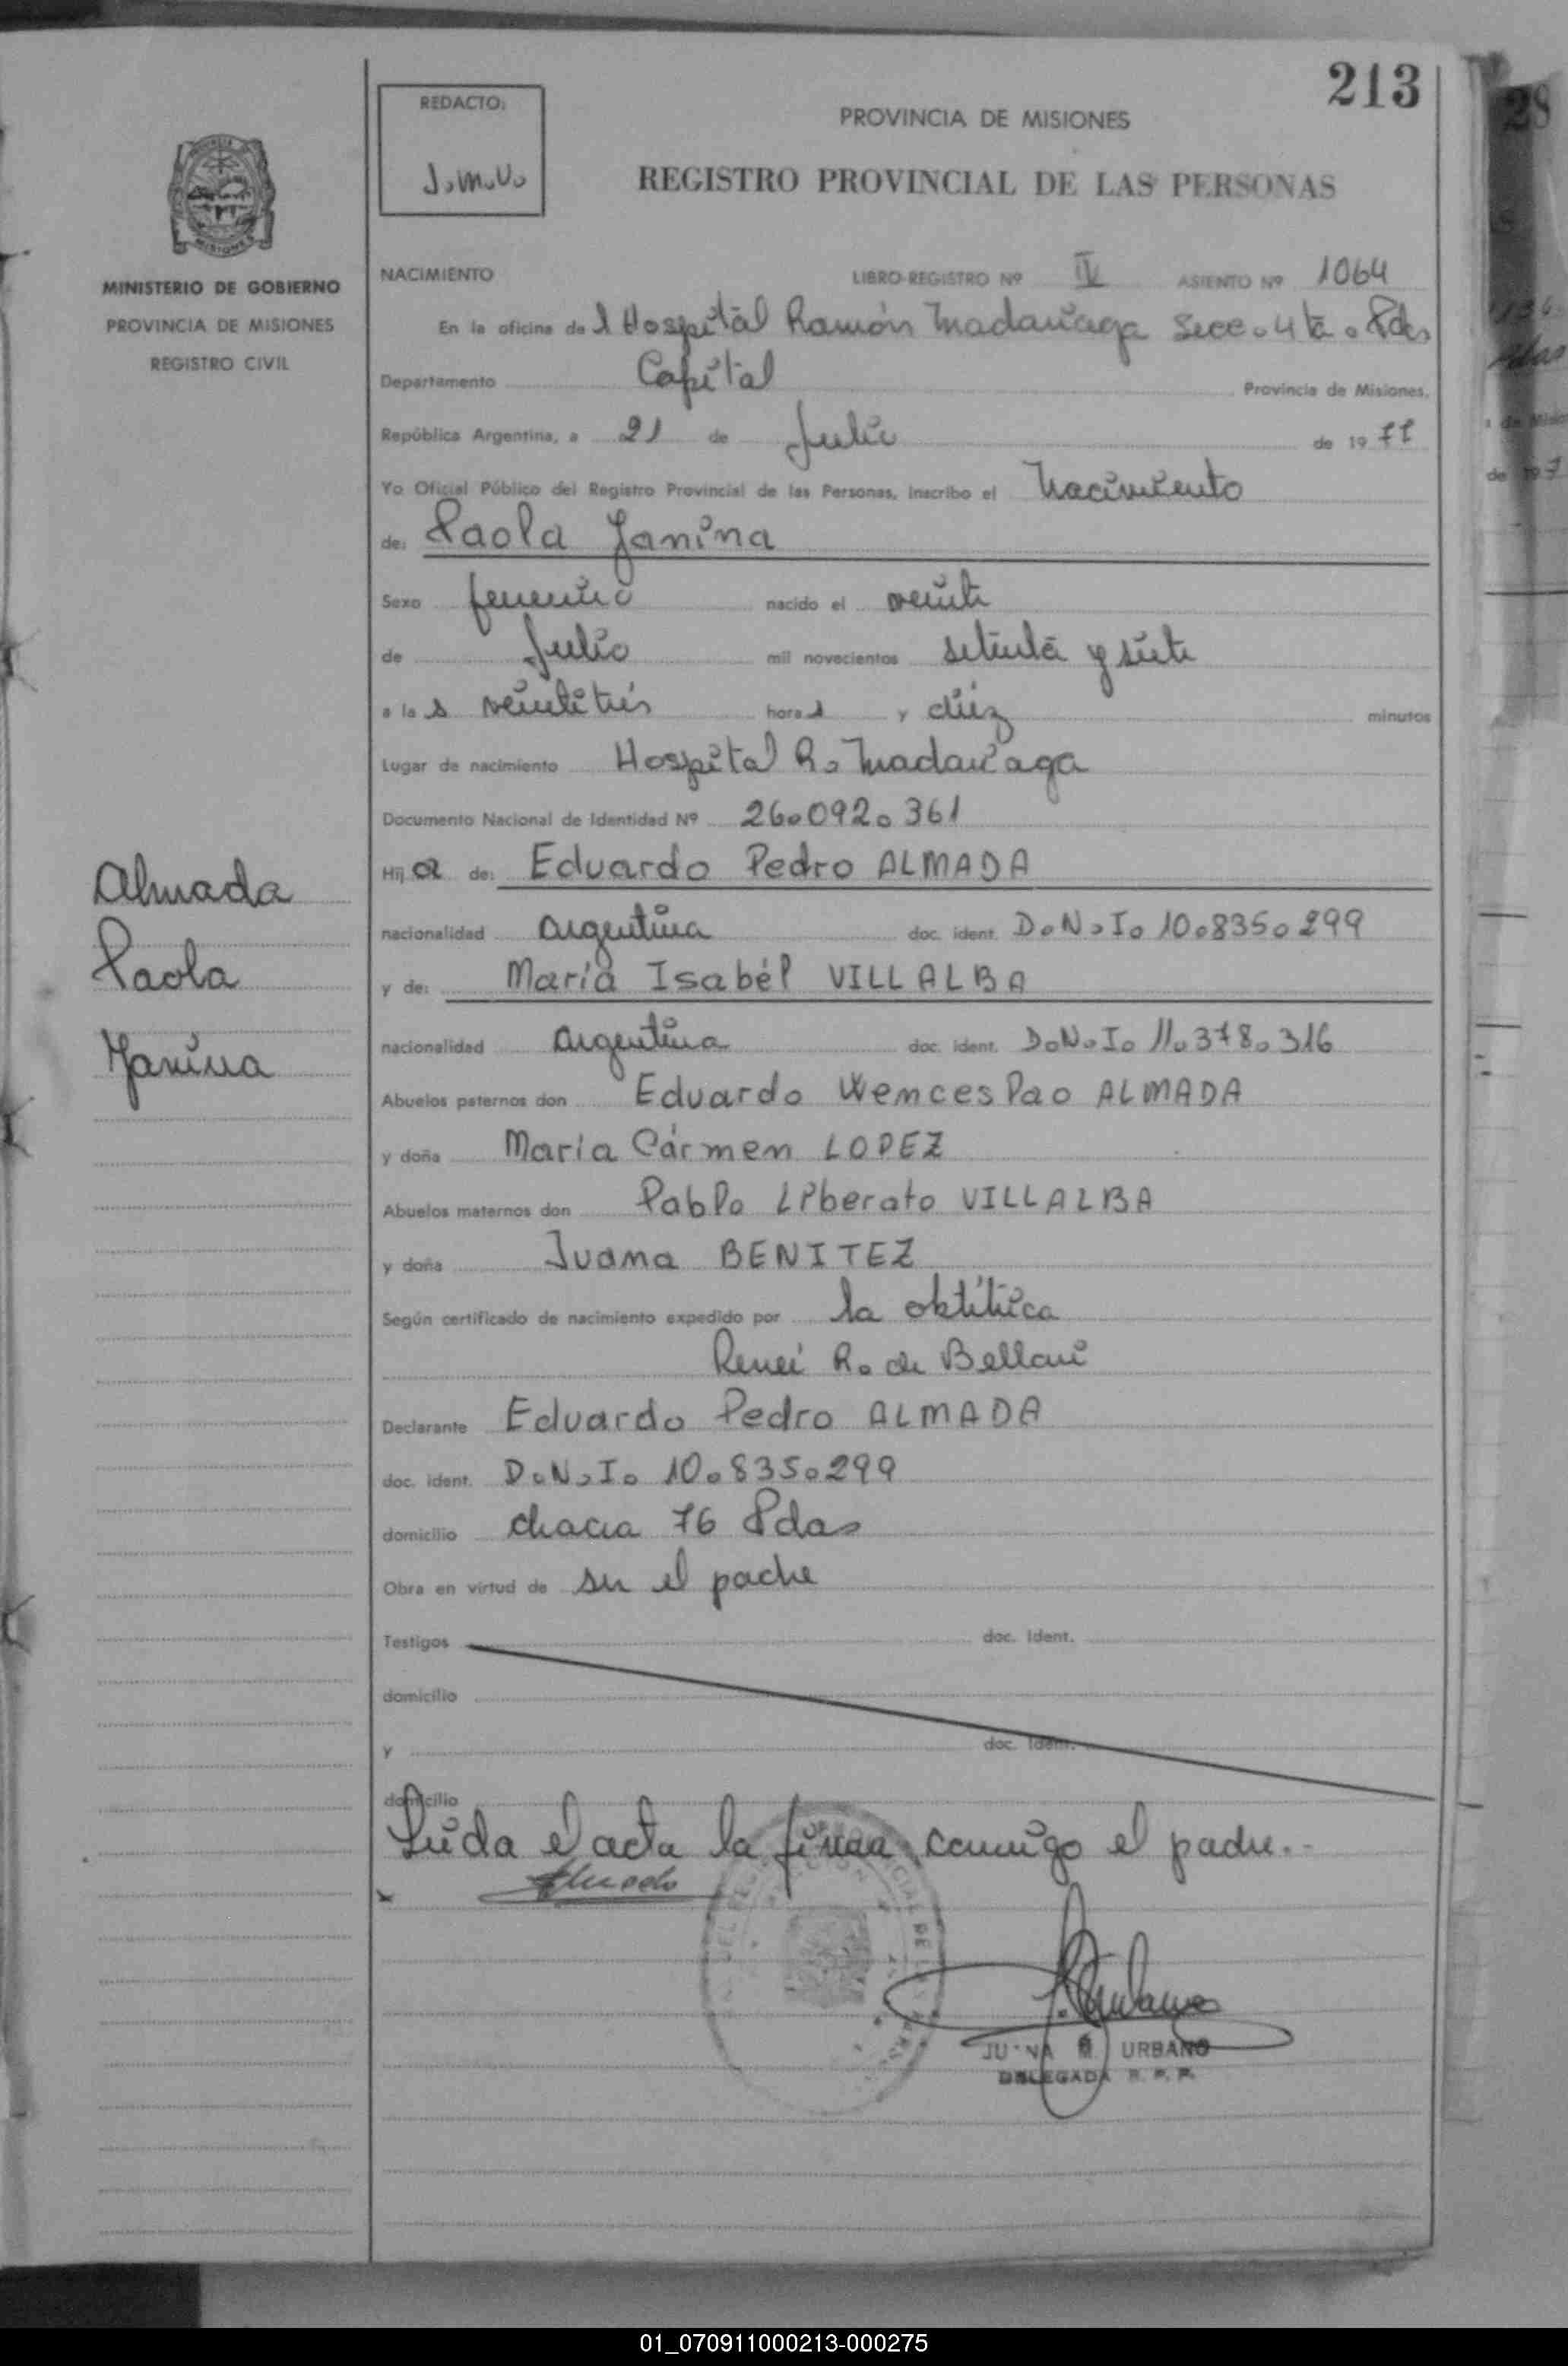 213
REDACTO:
J.M.U.
PROVINCIA DE MISIONES
REGISTRO PROVINCIAL DE LAS PERSONAS
MINISTERIO DE GOBIERNO
PROVINCIA DE MISIONES
REGISTRO CIVIL
NACIMIENTO LIBRO-REGISTRO Nº IV ASIENTO Nº 1064
En la oficina del Hospital Ramón Madariaga Secc. 4ta. Pdas
Departamento Capital Provincia de Misiones.
República Argentina, a 21 de Julio de 1977
Yo Oficial Público del Registro Provincial de las Personas, inscribo el Nacimiento
de: Paola Yanina
Sexo femenino nacido el veinte
de Julio mil novecientos setenta y siete
a las veintitrés horas y diez minutos
Lugar de nacimiento Hospital R. Madariaga
Documento Nacional de Identidad Nº 26.092.361
Hija de: Eduardo Pedro ALMADA
nacionalidad argentina doc. ident. D.N.I. 10.835.299
y de: María Isabel VILLALBA
nacionalidad argentina doc. ident. D.N.I. 11.378.316
Abuelos paternos don Eduardo Wenceslao ALMADA
y doña María Cármen LOPEZ
Abuelos maternos don Pablo Liberato VILLALBA
y doña Juana BENITEZ
Según certificado de nacimiento expedido por la obtétrica
R. de
Declarante Eduardo Pedro ALMADA
doc. ident. D.N.I. 10.835.299
domicilio chacra 76 Pdas
Obra en virtud de ser el padre
Testigos doc. ident.
domicilio
y doc. ident.
domicilio
Leída el acta la firma conmigo el padre.-
Almada
JUANA M. URBANO
DELEGADA R. P. P.
Almada
Paola
Yanina
01_070911000213-000275